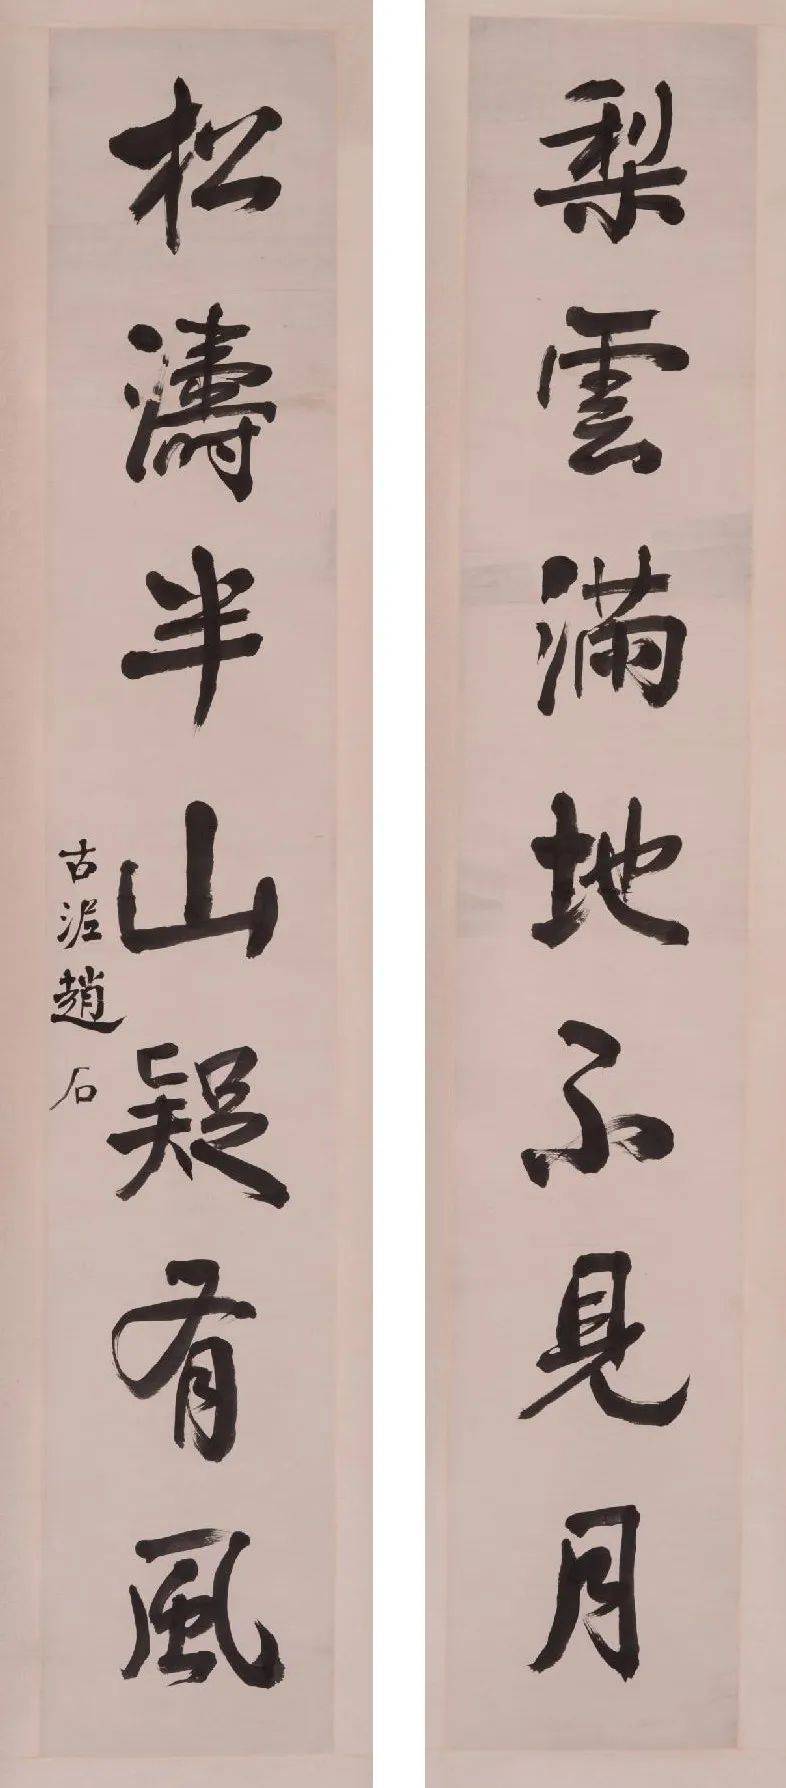 梨雲滿地不見月
松濤半山疑有風
古泥趙石